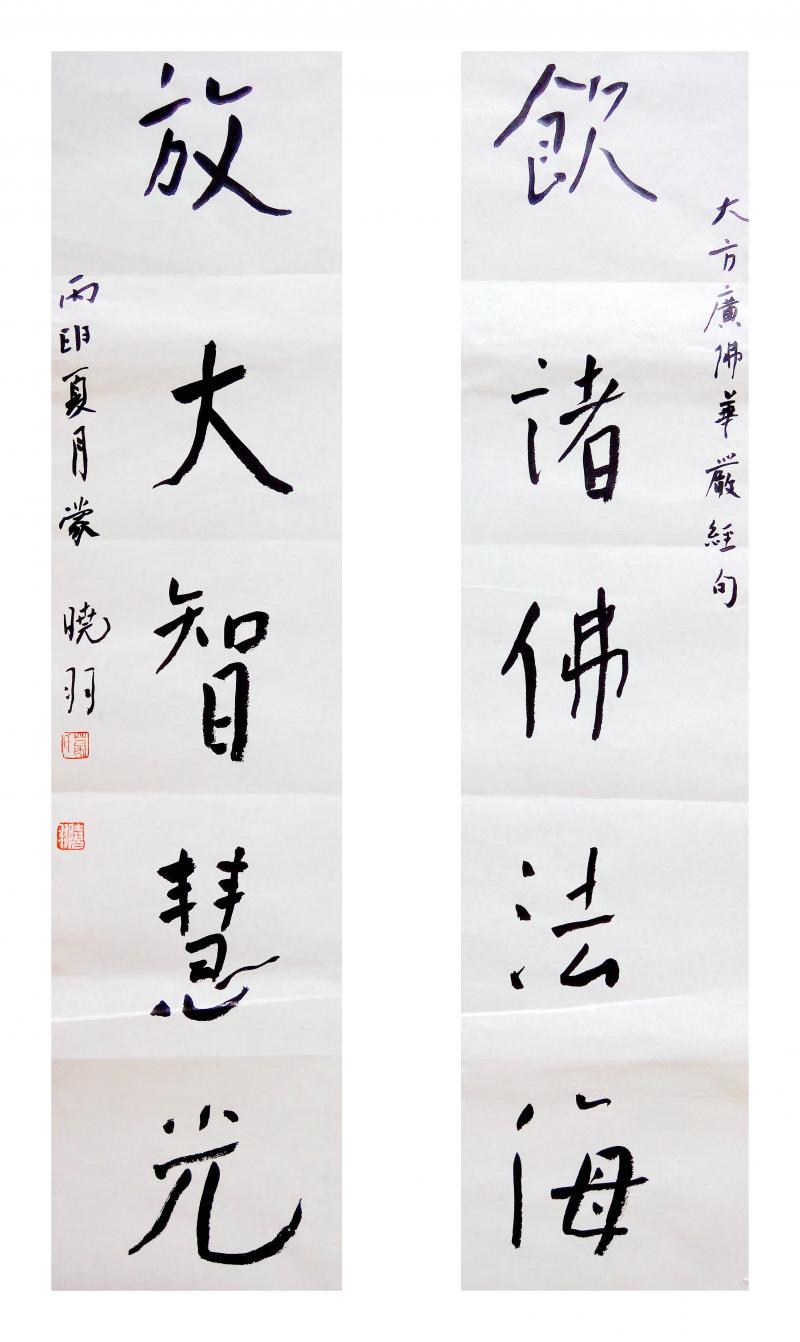 大方廣佛華嚴經句
飲諸佛法海
放大智慧光
丙申夏月蒙曉羽